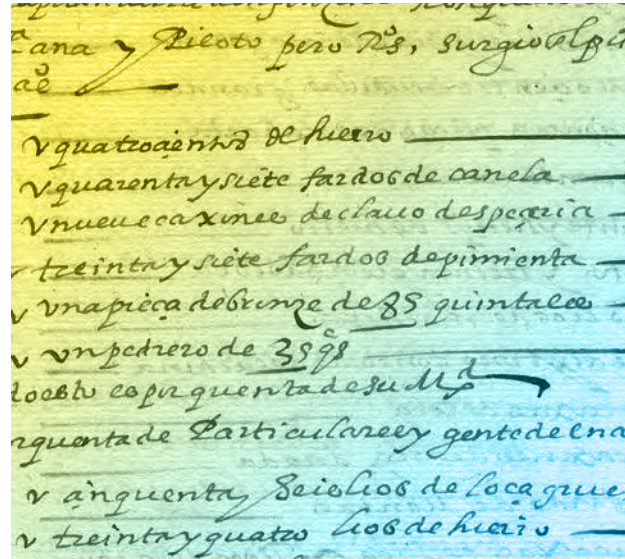 ana y Piloto pero Rºs, surgio
v quatrocientos de hierro
v quarenta y siete fardos de canela
v nueue caxines de clauo despeçeria
v treinta y siete fardos de pimienta
v vna pieça de bronze de 85 quintales
v vn pedrero de 25 qˢ
do esto es por quenta de su Mᵈ
quenta de Particulares y gente de
v çinquenta y seis lios de loça grue
v treinta y quatro lios de hierro